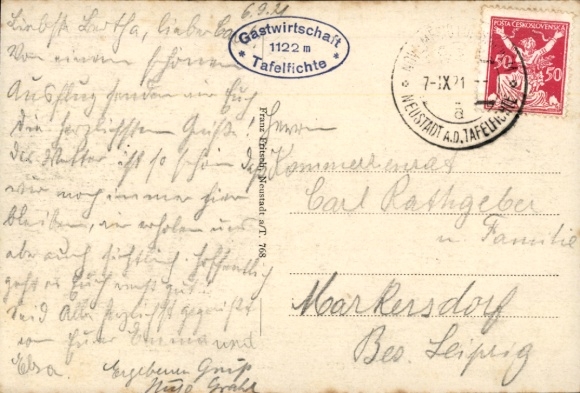 6.9.21
Liebste Bertha, lieber Carl
Von einem schönen
Ausflug senden wir Euch
die herzlichsten Grüße!
das Wetter ist so schön daß
wir noch immer hier
bleiben, wir erholen uns
aber auch sichtlich. Hoffentlich
geht es Euch recht gut.
Seid Alle herzlichst gegrüßt
von Eurer Emma und
Elsa. Ergebenen Gruß
Gastwirtschaft
1122 m
* Tafelfichte *
Franz Fritsch, Neustadt a/T. 768
POŠTA ČESKOSLOVENSKÁ
50 50
7-IX 21
a
NEUSTADT A.D. TAFELFICHTE
Herrn
Kommerzienrat
Carl Rathgeber
u. Familie
Markersdorf
Bez. Leipzig